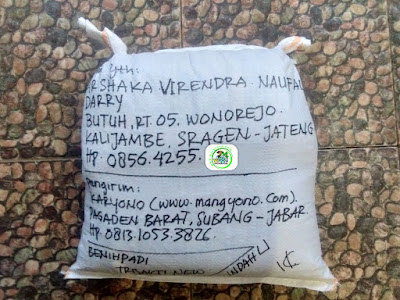 Yth:
ARSHAKA VIRENDRA NAUFAL
DARRY
BUTUH, RT 05. WONOREJO.
KALIJAMBE, SRAGEN - JATENG
Hp. 0856.4255.
Pengirim:
KARYONO (www.mangyono.com).
PAGADEN BARAT, SUBANG - JABAR.
Hp. 0813.1053.3826.
BENIHPADI
TRISAKTI NEW
INDAH